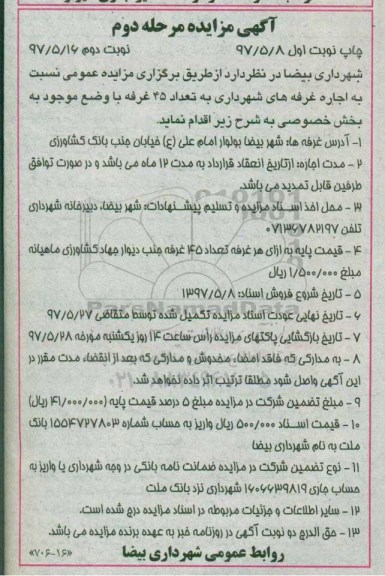 آگهی مزایده مرحله دوم
چاپ نوبت اول ۹۷/۵/۸ نوبت دوم ۹۷/۵/۱۶
شهرداری بیضا در نظر دارد از طریق برگزاری مزایده عمومی نسبت
به اجاره غرفه های شهرداری به تعداد ۴۵ غرفه با وضع موجود به
بخش خصوصی به شرح زیر اقدام نماید.
۱- آدرس غرفه ها: شهر بیضا بولوار امام علی (ع) خیابان جنب بانک کشاورزی
۲ - مدت اجاره: از تاریخ انعقاد قرارداد به مدت ۱۲ ماه می باشد و در صورت توافق
طرفین قابل تمدید می باشد.
۳ - محل اخذ اسناد مزایده و تسلیم پیشنهادات: شهر بیضا، دبیرخانه شهرداری
تلفن ۰۷۱۳۶۷۸۲۱۹۷
۴ - قیمت پایه به ازای هر غرفه تعداد ۴۵ غرفه جنب دیوار جهاد کشاورزی ماهیانه
مبلغ ۱/۵۰۰/۰۰۰ ریال
۵ - تاریخ شروع فروش اسناد: ۱۳۹۷/۵/۸
۶ - تاریخ نهایی عودت اسناد مزایده تکمیل شده توسط متقاضی ۹۷/۵/۲۷
۷ - تاریخ بازگشایی پاکتهای مزایده راس ساعت ۱۴ روز یکشنبه مورخه ۹۷/۵/۲۸
۸ - به مدارکی که فاقد امضاء، مخدوش و مدارکی که بعد از انقضاء مدت مقرر در
این آگهی واصل شود مطلقا ترتیب اثر داده نخواهد شد.
۹ - مبلغ تضمین شرکت در مزایده مبلغ ۵ درصد قیمت پایه (۴۱/۰۰۰/۰۰۰ ریال)
۱۰ - قیمت اسناد ۵۰۰/۰۰۰ ریال واریز به حساب شماره ۱۵۵۴۷۲۷۸۰۳ بانک
ملت به نام شهرداری بیضا
۱۱ - نوع تضمین شرکت در مزایده ضمانت نامه بانکی در وجه شهرداری یا واریز به
حساب جاری ۱۶۰۶۶۳۹۸۱۹ شهرداری نزد بانک ملت
۱۲ - سایر اطلاعات و جزئیات مربوطه در اسناد مزایده درج شده است.
۱۳ - حق الدرج دو نوبت آگهی در روزنامه خبر به عهده برنده مزایده می باشد.
روابط عمومی شهرداری بیضا «۷۰۶-۱۶»
ParsNamadData